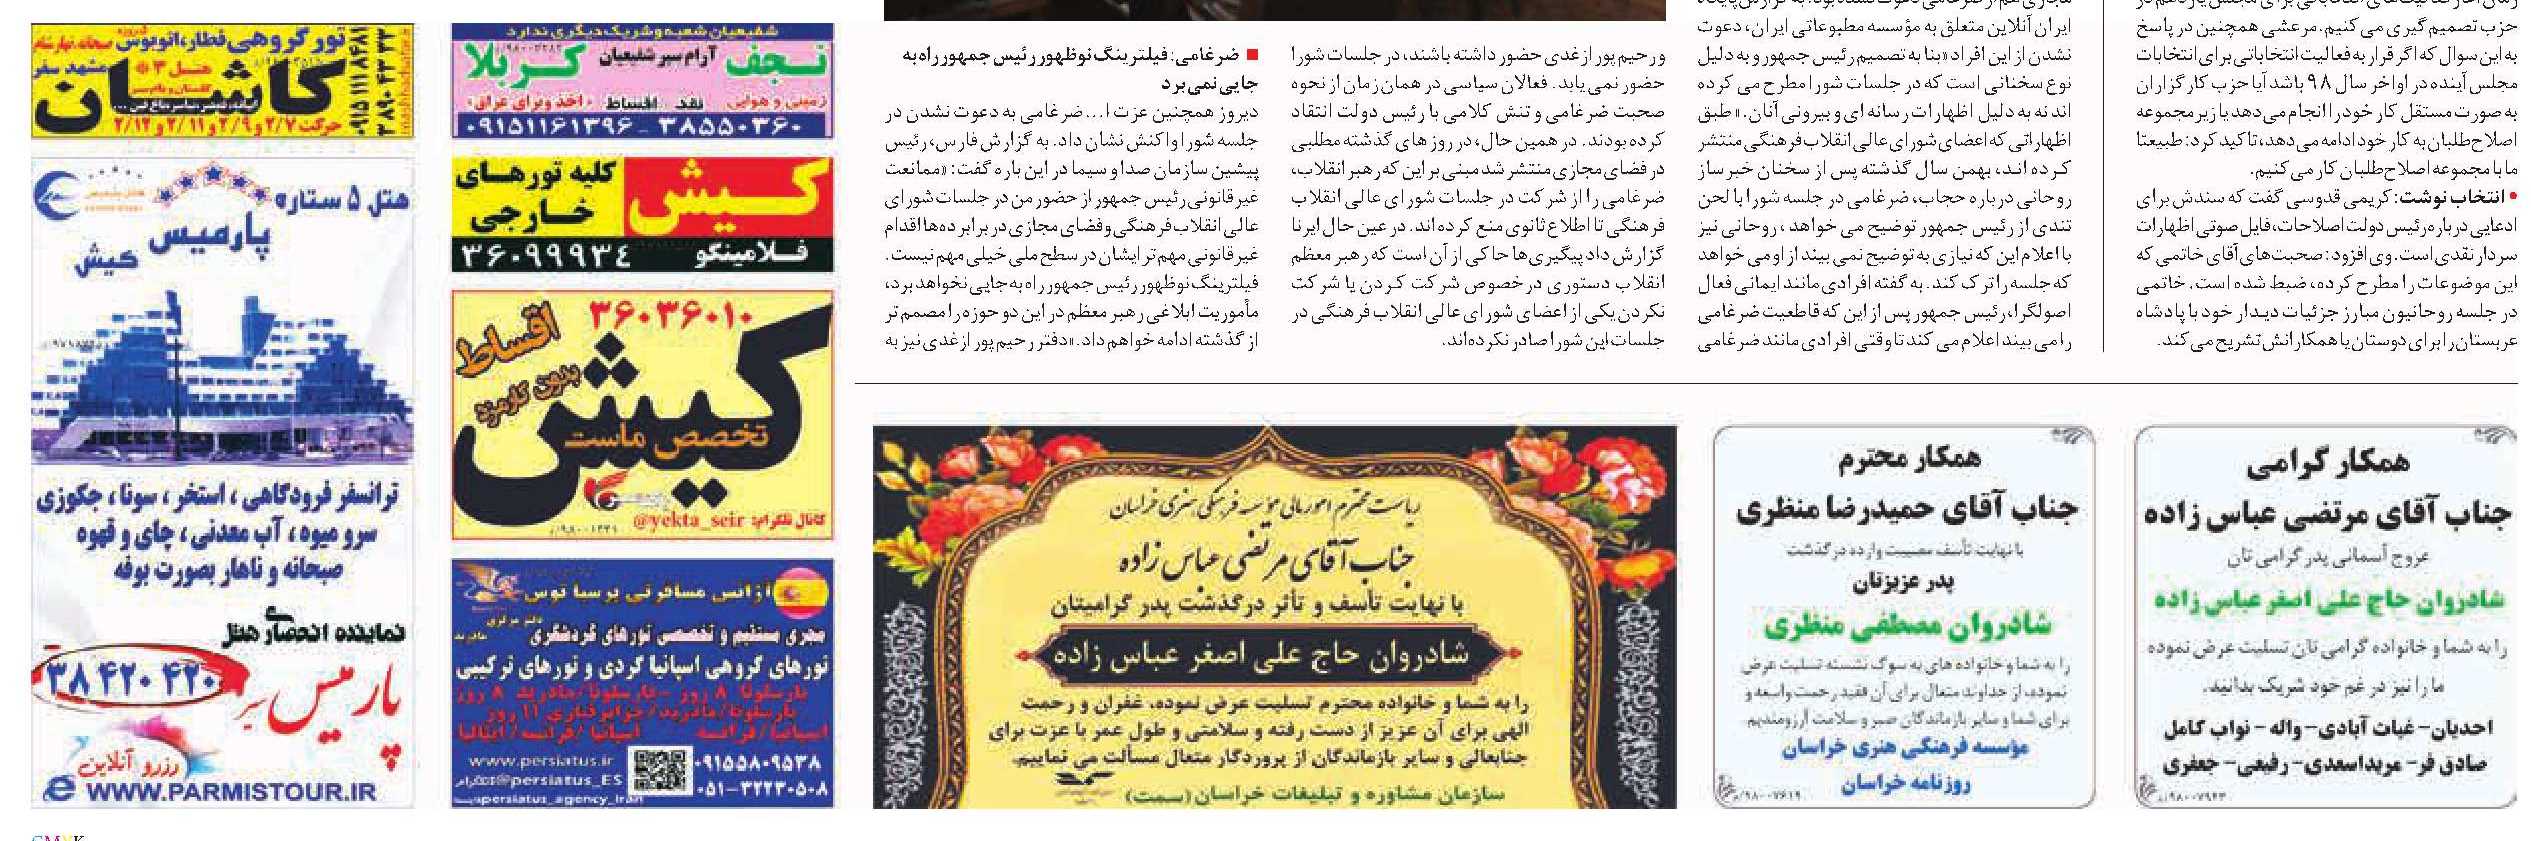 حزب تصمیم گیری می کنیم. مرعشی همچنین در پاسخ
به این سوال که اگر قرار به فعالیت انتخاباتی برای انتخابات
مجلس آینده در اواخر سال ۹۸ باشد آیا حزب کارگزاران
به صورت مستقل کار خود را انجام می دهد یا زیر مجموعه
اصلاح طلبان به کار خود ادامه می دهد، تاکید کرد: طبیعتا
ما با مجموعه اصلاح طلبان کار می کنیم.
• انتخاب نوشت: کریمی قدوسی گفت که سندش برای
ادعایی درباره رئیس دولت اصلاحات، فایل صوتی اظهارات
سردار نقدی است. وی افزود: صحبت های آقای خاتمی که
این موضوعات را مطرح کرده، ضبط شده است. خاتمی
در جلسه روحانیون مبارز جزئیات دیدار خود با پادشاه
عربستان را برای دوستان یا همکارانش تشریح می کند.
ایران آنلاین متعلق به مؤسسه مطبوعاتی ایران، دعوت
نشدن از این افراد «بنا به تصمیم رئیس جمهور و به دلیل
نوع سخنانی است که در جلسات شورا مطرح می کرده
اند نه به دلیل اظهارات رسانه ای و بیرونی آنان.» طبق
اظهاراتی که اعضای شورای عالی انقلاب فرهنگی منتشر
کرده اند، بهمن سال گذشته پس از سخنان خبر ساز
روحانی درباره حجاب، ضرغامی در جلسه شورا با لحن
تندی از رئیس جمهور توضیح می خواهد ، روحانی نیز
با اعلام این که نیازی به توضیح نمی بیند از او می خواهد
که جلسه را ترک کند. به گفته افرادی مانند ایمانی فعال
اصولگرا، رئیس جمهور پس از این که قاطعیت ضرغامی
را می بیند اعلام می کند تا وقتی افرادی مانند ضرغامی
و رحیم پور ازغدی حضور داشته باشند، در جلسات شورا
حضور نمی یابد. فعالان سیاسی در همان زمان از نحوه
صحبت ضرغامی و تنش کلامی با رئیس دولت انتقاد
کرده بودند. در همین حال، در روز های گذشته مطلبی
در فضای مجازی منتشر شد مبنی بر این که رهبر انقلاب،
ضرغامی را از شرکت در جلسات شورای عالی انقلاب
فرهنگی تا اطلاع ثانوی منع کرده اند. در عین حال ایرنا
گزارش داد پیگیری ها حاکی از آن است که رهبر معظم
انقلاب دستوری در خصوص شرکت کردن یا شرکت
نکردن یکی از اعضای شورای عالی انقلاب فرهنگی در
جلسات این شورا صادر نکرده اند.
■ ضرغامی: فیلترینگ نوظهور رئیس جمهور راه به
جایی نمی برد
دیروز همچنین عزت ا... ضرغامی به دعوت نشدن در
جلسه شورا واکنش نشان داد. به گزارش فارس، رئیس
پیشین سازمان صدا و سیما در این باره گفت: «ممانعت
غیرقانونی رئیس جمهور از حضور من در جلسات شورای
عالی انقلاب فرهنگی و فضای مجازی در برابر ده ها اقدام
غیرقانونی مهم تر ایشان در سطح ملی خیلی مهم نیست.
فیلترینگ نوظهور رئیس جمهور راه به جایی نخواهد برد،
مأموریت ابلاغی رهبر معظم در این دو حوزه را مصمم تر
از گذشته ادامه خواهم داد.» دفتر رحیم پور ازغدی نیز به
همکار گرامی
جناب آقای مرتضی عباس زاده
عروج آسمانی پدر گرامی تان
شادروان حاج علی اصغر عباس زاده
را به شما و خانواده گرامی تان تسلیت عرض نموده
ما را نیز در غم خود شریک بدانید.
احدیان- غیاث آبادی- واله - نواب کامل
صادق فر- مریداسعدی- رفیعی- جعفری
/۹۸۰۰۷۹۴۳
همکار محترم
جناب آقای حمیدرضا منظری
با نهایت تأسف مصیبت وارده درگذشت
پدر عزیزتان
شادروان مصطفی منظری
را به شما و خانواده های به سوگ نشسته تسلیت عرض
نموده، از خداوند متعال برای آن فقید رحمت واسعه و
برای شما و سایر بازماندگان صبر و سلامت آرزومندیم.
مؤسسه فرهنگی هنری خراسان
روزنامه خراسان
/۹۸۰۰۷۶۱۹
ریاست محترم امور مالی مؤسسه فرهنگی هنری خراسان
جناب آقای مرتضی عباس زاده
با نهایت تأسف و تأثر درگذشت پدر گرامیتان
شادروان حاج علی اصغر عباس زاده
را به شما و خانواده محترم تسلیت عرض نموده، غفران و رحمت
الهی برای آن عزیز از دست رفته و سلامتی و طول عمر با عزت برای
جنابعالی و سایر بازماندگان از پروردگار متعال مسألت می نماییم.
سازمان مشاوره و تبلیغات خراسان (سمت)
شفیعیان شعبه و شریک دیگری ندارد
نجف آرام سیر شفیعیان کربلا
زمینی و هوایی نقد _ اقساط «اخذ ویزای عراق»
۰۹۱۵۱۱۶۱۳۹۶ - ۳۸۵۵۰۳۶۰
کیش کلیه تورهای
خارجی
فلامینگو ۳۶۰۹۹۹۳۴
۳۶۰۳۶۰۱۰
اقساط
بدون کارمزد
کیش
تخصص ماست
کانال تلگرام: @yekta_seir
آژانس مسافرتی پرسیا توس
مجری مستقیم و تخصصی تورهای گردشگری
تورهای گروهی اسپانیا گردی و تورهای ترکیبی
بارسلونا ۸ روز - بارسلونا/مادرید ۸ روز
بارسلونا/مادرید/جزایر قناری ۱۱ روز
اسپانیا/فرانسه اسپانیا/فرانسه/ایتالیا
۰۹۱۵۵۸۰۹۵۳۸ www.persiatus.ir
۰۵۱-۳۲۲۳۰۵۰۸ @persiatus_ES
persiatus_agency_iran
تور گروهی قطار، اتوبوس
صبحانه، نهار، شام
هتل ۳*
مشهد سفر
کاشان
حرکت ۲/۷ و ۲/۹ و ۲/۱۱ و ۲/۱۲
۰۹۱۵۱۱۱۸۴۸۱
۳۸۹۰۴۳۳
هتل ۵ ستاره
پارمیس
کیش
ترانسفر فرودگاهی ، استخر ، سونا ، جکوزی
سرو میوه ، آب معدنی ، چای و قهوه
صبحانه و ناهار بصورت بوفه
نماینده انحصاری هتل
پارمیس سیر
۳۸۴۲۰۴۲۰
رزرو آنلاین
WWW.PARMISTOUR.IR
CMYK